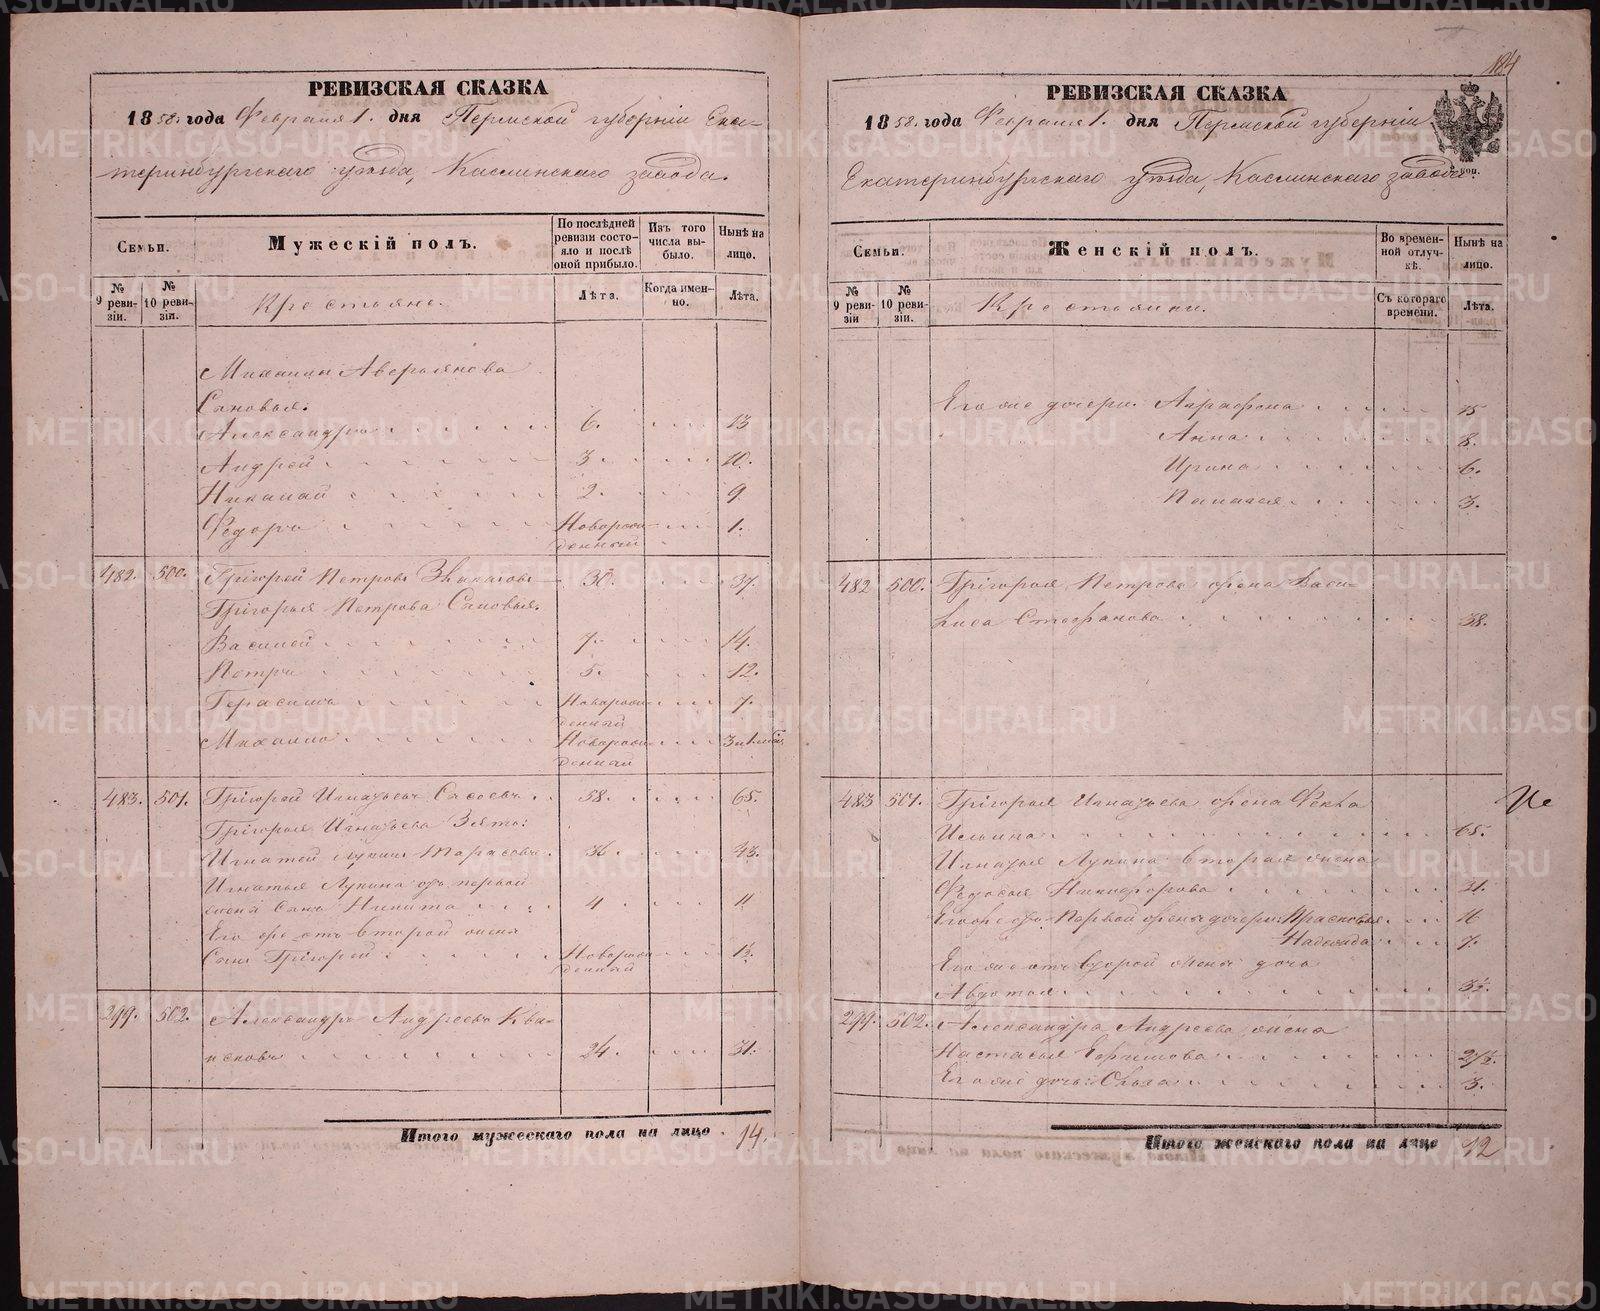 РЕВИЗСКАЯ СКАЗКА
1858 года Февраля 1. дня Пермской губерніи Ека-
теринбургскаго уѣзда, Каслинскаго завода.
Семьи.
Мужескій полъ.
По послѣдней ревизіи состояло и послѣ оной прибыло.
Изъ того числа выбыло.
Нынѣ на лицо.
№ 9 ревизіи.
№ 10 ревизіи.
Крестьяне.
Лѣта.
Когда именно.
Лѣта.
Михаилы Аверьянова
Сыновья:
Александръ 6. 13
Андрей 3. 10.
Николай 2. 9
Федоръ Новорожденный 1.
482. 500. Григорей Петровъ 30. 37.
Григорья Петрова Сыновья.
Василей 7. 14.
Петръ 5. 12.
Герасимъ Новорожденный 7.
Михайло Новорожденный
483. 501. Григорей Игнатьевъ Сысоевъ 58. 65.
Григорья Игнатьева Зять:
Игнатей Лупинъ Тарасовъ 36 43.
Игнатья Лупина отъ первой
жены Сынъ Никита 4 11
Его же отъ второй жены
Сынъ Григорей Новорожденный 1½
249. 502. Александръ Андреевъ 24. 31.
Итого мужескаго пола на лицо 14.
184
РЕВИЗСКАЯ СКАЗКА
1858 года Февраля 1. дня Пермской губерніи
Екатеринбургскаго уѣзда, Каслинскаго завода.
коп.
Семьи.
Женскій полъ.
Во временной отлучкѣ.
Нынѣ на лицо.
№ 9 ревизіи
№ 10 ревизіи.
Крестьянки.
Съ котораго времени.
Лѣта.
Его же дочери: Аграфена 15
Анна 8.
Ирина 6.
Палагея 3.
482 500. Григорья Петрова жена Васи-
лиса Стефанова 38.
483 501. Григорья Игнатьева жена Фекла
Ильина 65.
Игнатья Лупина вторая жена
Федосья Никифорова 31.
Его же отъ Первой жены дочери: Прасковья 16
Надежда 7.
Его же отъ второй жены дочь
Авдотья 3½
249. 502. Александра Андреева жена
Настасья Ефимова
Его же дочь: Ольга 3.
Итого женскаго пола на лицо 12
METRIKI.GASO-URAL.RU